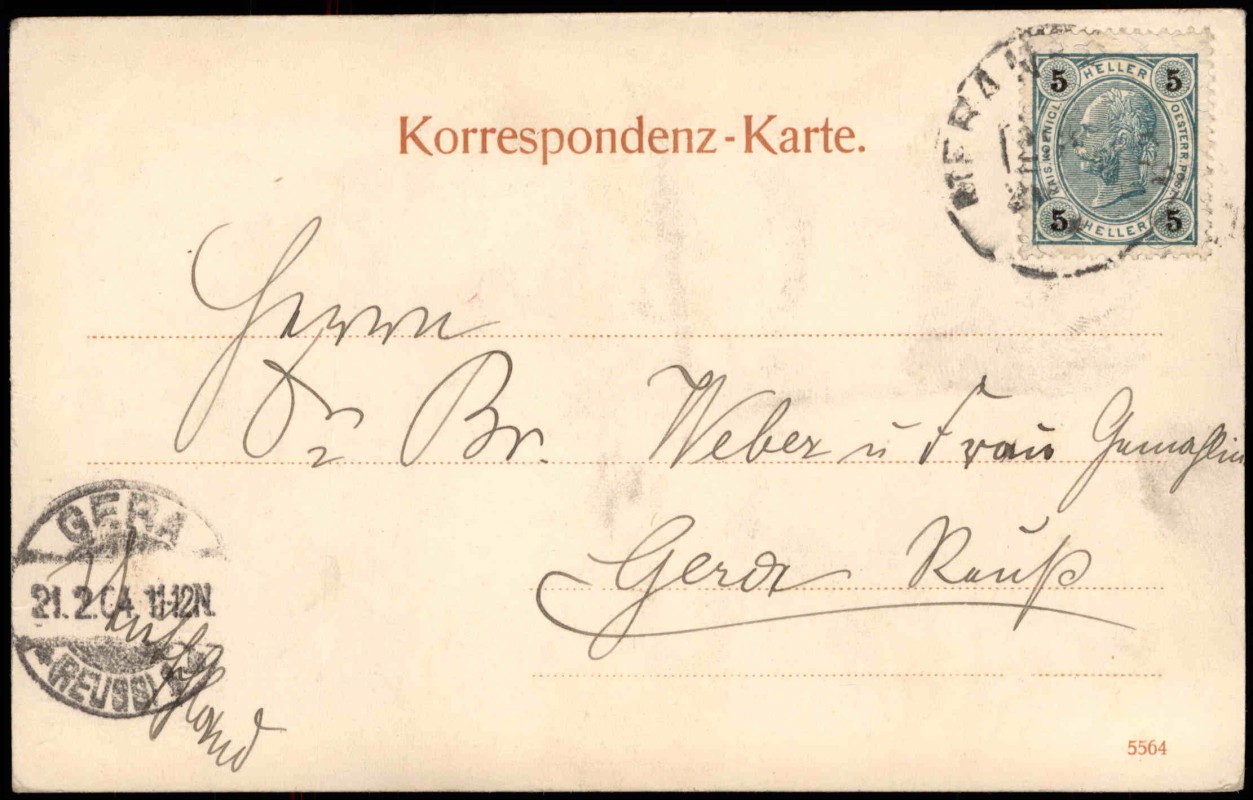 Korrespondenz-Karte.
MERAN
5 HELLER 5
KAIS. KOENIGL. OESTERR. POST
5 HELLER 5
Herrn
Dr Br. Weber u Frau Gemahlin
Gera Reuß
GERA
21.2.04. 11-12N.
(REUSS)
Deutschland
5564